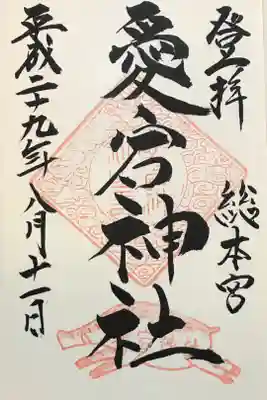 登拝
総本宮
愛宕神社
平成二十九年八月十一日